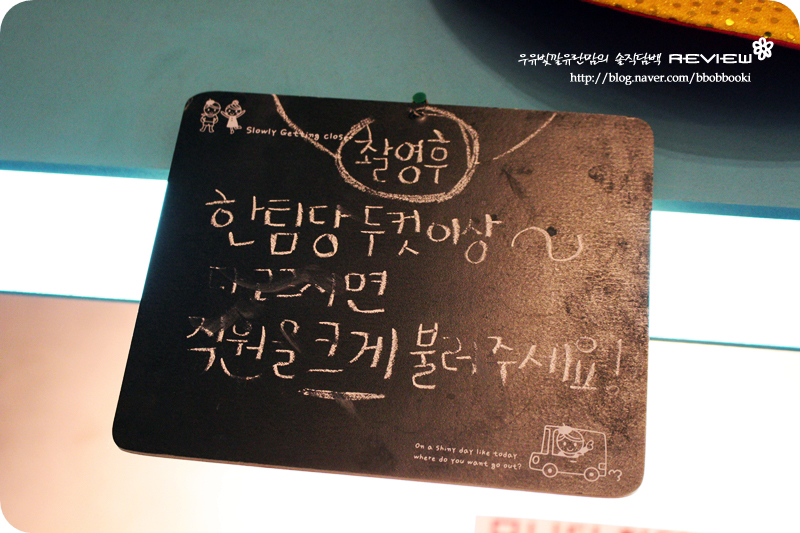 우유빛깔유런맘의 솔직담백 REVIEW
http://blog.naver.com/bbobbooki
Slowly Getting close
촬영후
한팀당 두컷이상~
직원을 크게 불러주세요!
On a shiny day like today
where do you want go out?